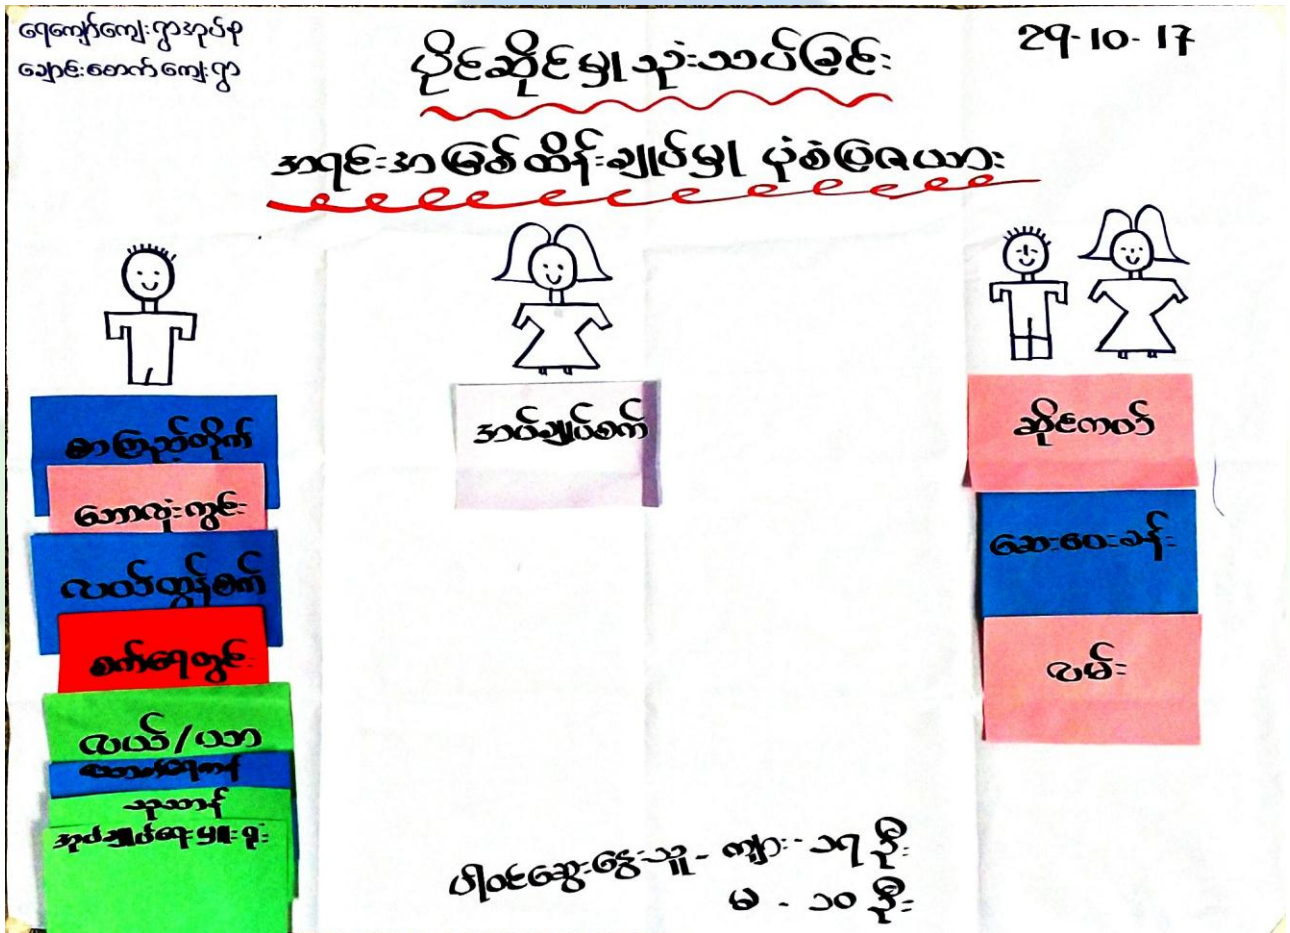 ရေကျော်ကျေးရွာအုပ်စု
ချောင်းစောက်ကျေးရွာ
29-10-17
ပိုင်ဆိုင်မှုသုံးသပ်ခြင်း
အရင်းအမြစ်ထိန်းချုပ်မှု ပုံစံပြဇယား
စာကြည့်တိုက်
ဘောလုံးကွင်း
လယ်ထွန်စက်
စက်ရေတွင်း
လယ်/ယာ
သုသာန်
အုပ်ချုပ်ရေးမှူးရုံး
အပ်ချုပ်စက်
ဆိုင်ကယ်
ဆေးပေးခန်း
လမ်း
ပါဝင်ဆွေးနွေးသူ - ကျား - ၁၅ ဦး
မ - ၁၀ ဦး